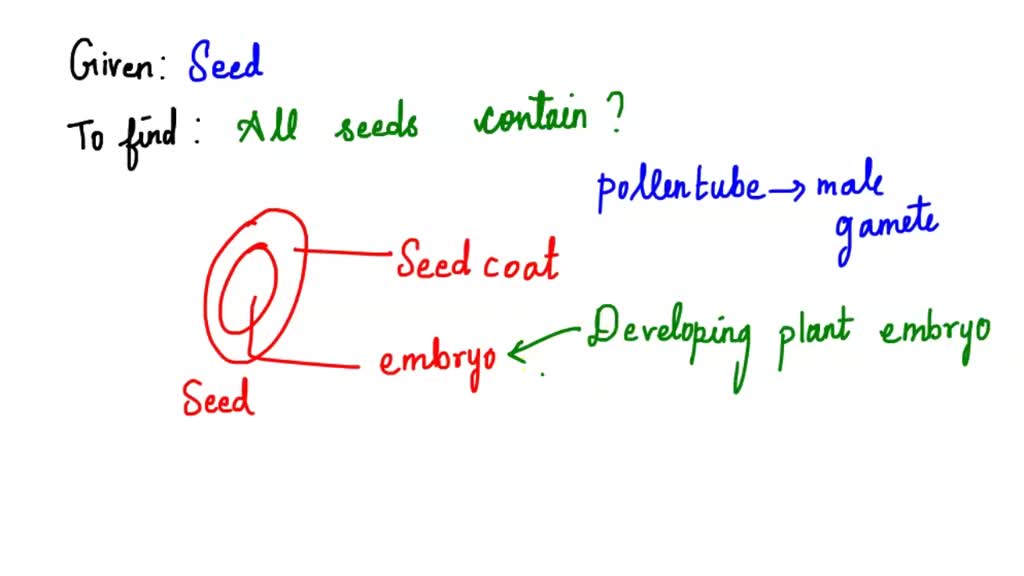 Given: Seed
To find: All seeds contain?
pollentube → male
gamete
Seed coat
Developing plant embryo
embryo
Seed